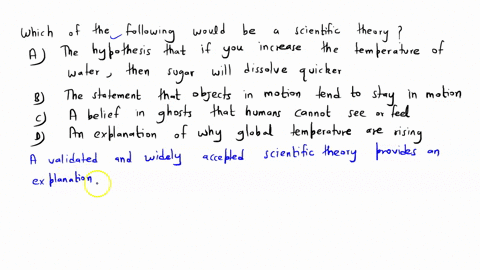 Which of the following would be a scientific theory?
A) The hypothesis that if you increase the temperature of
water, then sugar will dissolve quicker
B) The statement that objects in motion tend to stay in motion
C) A belief in ghosts that humans cannot see or feel
D) An explanation of why global temperature are rising
A validated and widely accepted scientific theory provides an
explanation.